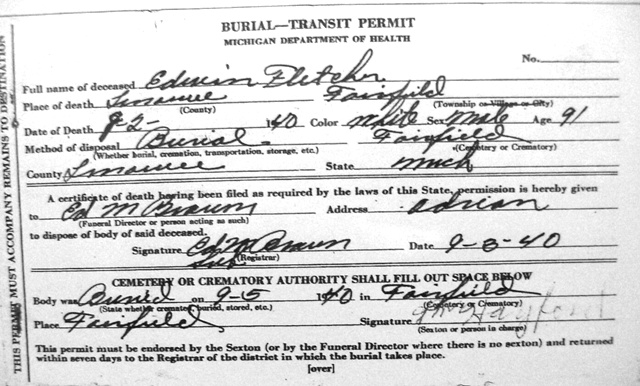 BURIAL—TRANSIT PERMIT
MICHIGAN DEPARTMENT OF HEALTH
No.
Full name of deceased Edwin Fletcher
Place of death Lenawee Fairfield
(County) (Township or Village or City)
Date of Death 9-2- 1940 Color White Sex Male Age 91
Method of disposal Burial Fairfield
(Whether burial, cremation, transportation, storage, etc.) (Cemetery or Crematory)
County Lenawee State Mich
A certificate of death having been filed as required by the laws of this State, permission is hereby given
to Ed M Braun Address Adrian
(Funeral Director or person acting as such)
to dispose of body of said deceased.
Signature Ed M Braun Date 9-3-40
(Registrar)
CEMETERY OR CREMATORY AUTHORITY SHALL FILL OUT SPACE BELOW
Body was Buried on 9-5 1940 in Fairfield
(State whether cremated, buried, stored, etc.) (Cemetery or Crematory)
Place Fairfield Signature Hayford
(Sexton or person in charge)
This permit must be endorsed by the Sexton (or by the Funeral Director where there is no sexton) and returned
within seven days to the Registrar of the district in which the burial takes place.
[over]
THIS PERMIT MUST ACCOMPANY REMAINS TO DESTINATION